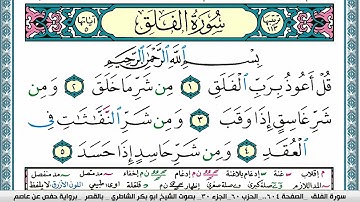 ترتيبها ١١٣ سُورَةُ الْفَلَقِ آياتها ٥
بِسْمِ اللَّهِ الرَّحْمَٰنِ الرَّحِيمِ
قُلْ أَعُوذُ بِرَبِّ الْفَلَقِ ١ مِن شَرِّ مَا خَلَقَ ٢ وَمِن
شَرِّ غَاسِقٍ إِذَا وَقَبَ ٣ وَمِن شَرِّ النَّفَّاثَاتِ فِي
الْعُقَدِ ٤ وَمِن شَرِّ حَاسِدٍ إِذَا حَسَدَ ٥
سورة الفلق الصفحة ٦٠٤ الحزب ٦٠ الجزء ٣٠ بصوت الشيخ أبو بكر الشاطري بالقصر برواية حفص عن عاصم